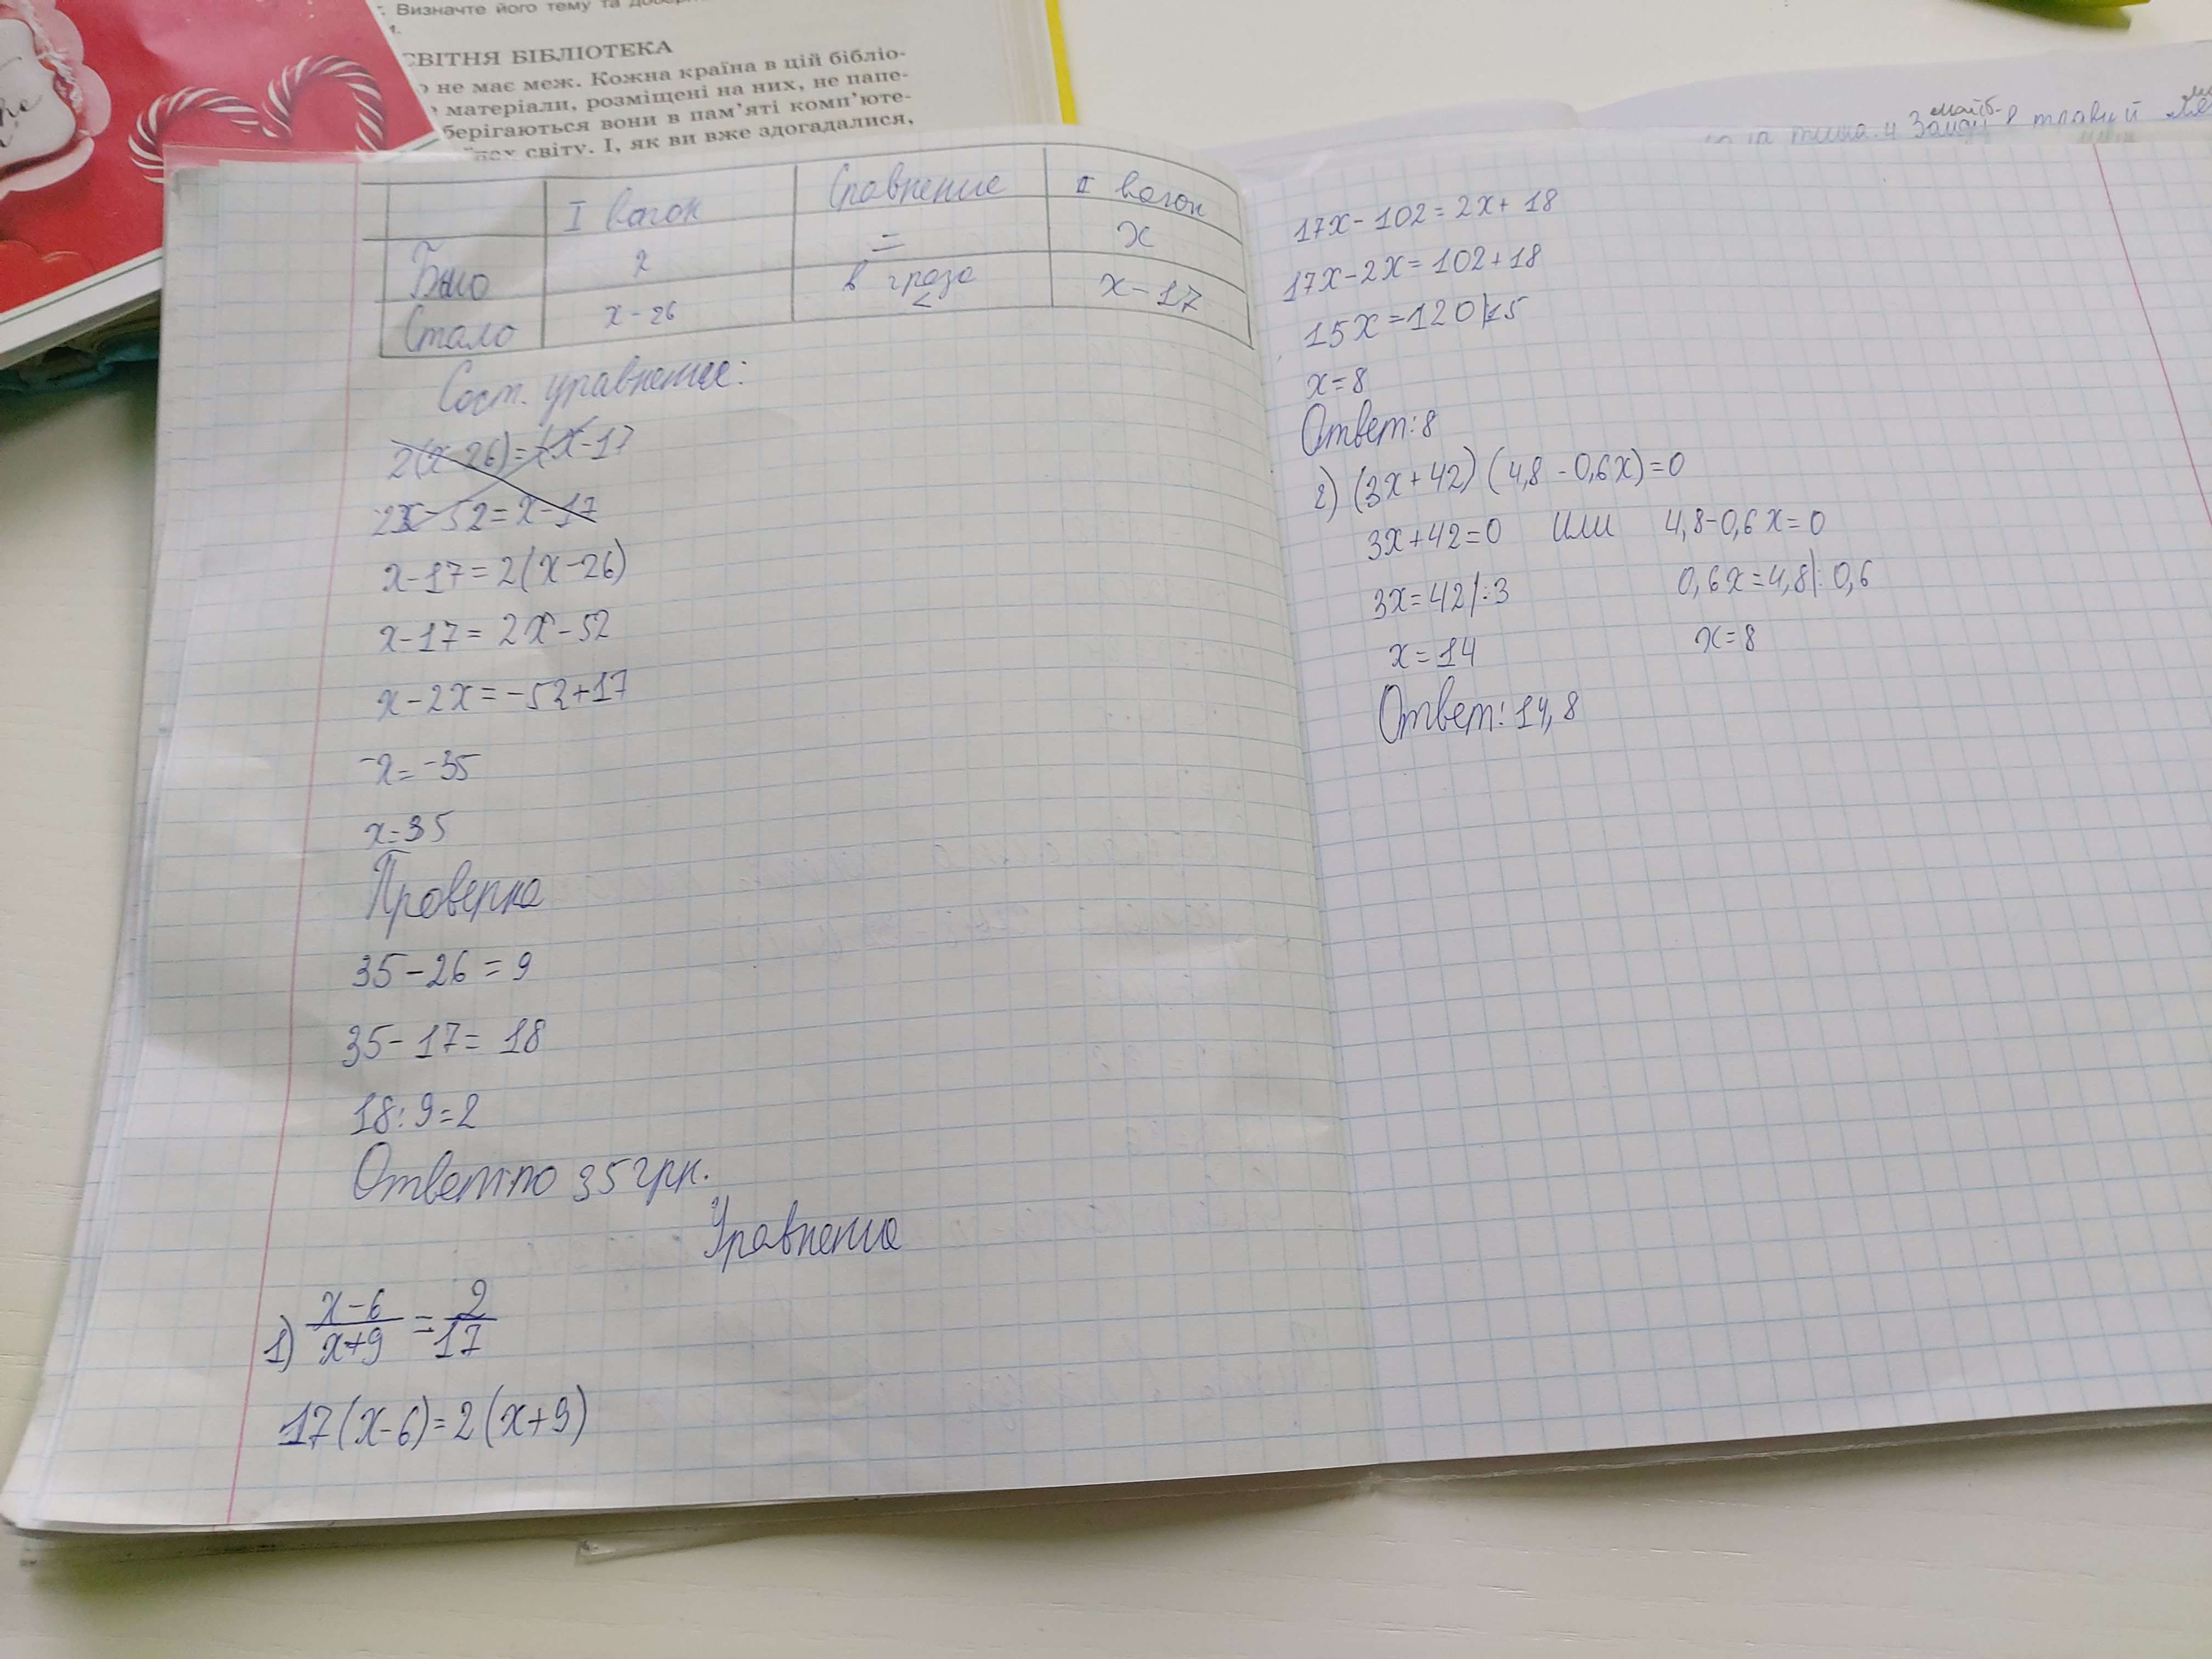 Визначте його тему та
СВІТНЯ БІБЛІОТЕКА
не має меж. Кожна країна в цій бібліо-
матеріали, розміщені на них, не папе-
берігаються вони в пам’яті комп’юте-
світу. І, як ви вже здогадалися,
I вагон Сравнение II вагон
Было x = x
Стало x-26 в 2 раза < x-17
Сост. уравнение:
2(x-26)=x-17
2x-52=x-17
x-17=2(x-26)
x-17=2x-52
x-2x=-52+17
-x=-35
x=35
Проверка
35-26=9
35-17=18
18:9=2
Ответ:по 35 грн.
Уравнения
1) x-6/x+9=2/17
17(x-6)=2(x+9)
17x-102=2x+18
17x-2x=102+18
15x=120|:15
x=8
Ответ:8
2) (3x+42)(4,8-0,6x)=0
3x+42=0 или 4,8-0,6x=0
3x=42|:3 0,6x=4,8|:0,6
x=14 x=8
Ответ:14,8